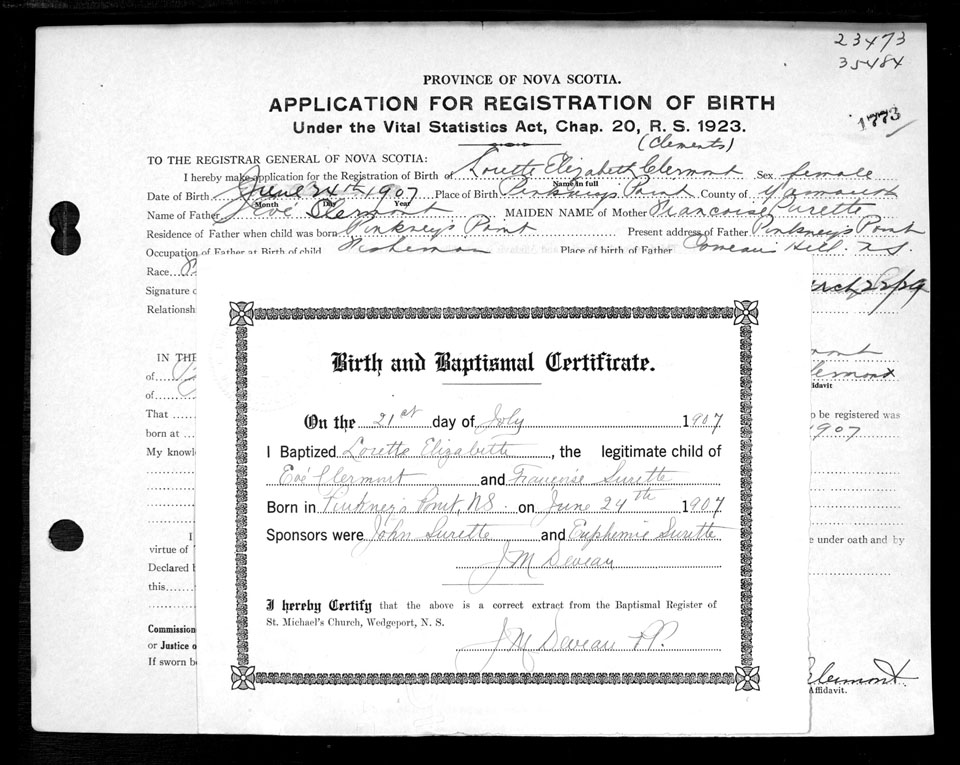 23473
35484
1773
PROVINCE OF NOVA SCOTIA.
APPLICATION FOR REGISTRATION OF BIRTH
Under the Vital Statistics Act, Chap. 20, R. S. 1923.
(Clements)
TO THE REGISTRAR GENERAL OF NOVA SCOTIA:
I hereby make application for the Registration of Birth of Lorette Elizabeth Clermont Sex female
Name in full
Date of Birth June 24th 1907 Place of Birth Pinkneys Point County of Yarmouth
Month Day Year
Name of Father Clermont MAIDEN NAME of Mother Francoise Surette
Residence of Father when child was born Pinkney's Point Present address of Father Pinkney's Point
Occupation of Father at Birth of child Fisherman Place of birth of Father Comeau's Hill. N.S.
Race
Signature
Relationsh
IN THE
of
of
Clermont
ffidavit
That
o be registered was
born at
1907
My knowl
I
virtue of
e under oath and by
Declared b
this
Commission
or Justice o
If sworn b
Clermont
Affidavit.
Birth and Baptismal Certificate.
On the 21st day of July 1907
I Baptized Loretta Elizabette, the legitimate child of
Evé Clermont and Francoise Surette
Born in Pinkney's Point, NS. on June 24th 1907
Sponsors were John Surette and Euphemie Surette
J M Deveau
I hereby Certify that the above is a correct extract from the Baptismal Register of
St. Michael's Church, Wedgeport, N. S.
J M Deveau P.P.